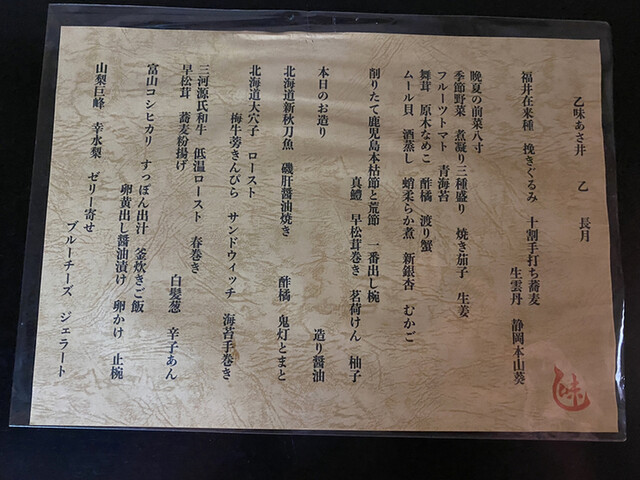 乙味あさ井　乙　長月
福井在来種　挽きぐるみ　十割手打ち蕎麦
生雲丹　静岡本山葵
晩夏の前菜八寸
季節野菜　煮凝り三種盛り　焼き茄子　生姜
フルーツトマト　青海苔
舞茸　原木なめこ　酢橘　渡り蟹
ムール貝　酒蒸し　蛸柔らか煮　新銀杏　むかご
削りたて鹿児島本枯節と荒節　一番出し椀
真鱧　早松茸巻き　茗荷けん　柚子
本日のお造り　造り醤油
北海道新秋刀魚　磯肝醤油焼き　酢橘　鬼灯とまと
北海道大穴子　ロースト
梅牛蒡きんぴら　サンドウィッチ　海苔手巻き
三河源氏和牛　低温ロースト　春巻き
早松茸　蕎麦粉揚げ　白髪葱　辛子あん
富山コシヒカリ　すっぽん出汁　釜炊きご飯
卵黄出し醤油漬け　卵かけ　止椀
山梨巨峰　幸水梨　ゼリー寄せ
ブルーチーズ　ジェラート
味